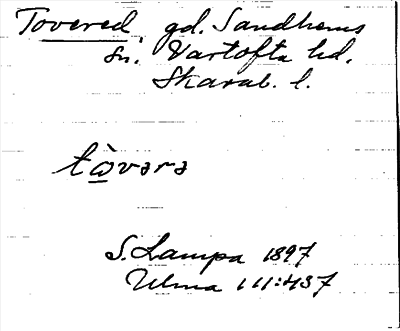 Tovered gd. Sandhems
sn. Vartofta hd.
Skarab. l.
tò̲vərə
S. Lampa 1897
Ulma 111:437